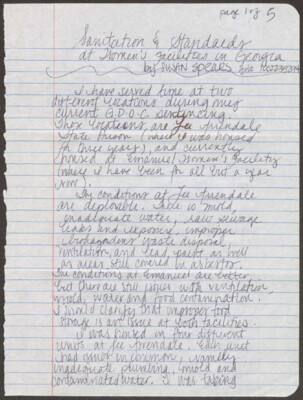 page 1 of 5
Sanitation & Standards
at Women's Facilities in Georgia
by SUSAN SPEARS
I have served time at two
different locations during my
current G.D.O.C. sentencing.
Those locations are Lee Arrendale
State Prison (where I was housed
for three years), and currently
housed at Emanuel Women's Facility
(where I have been for all but a year
now).
The conditions at Lee Arrendale
are deplorable. There is mold,
inadequate water, raw sewage
leaks and exposure, improper
biohazardous waste disposal,
ventilation, and lead paint as well
as areas still covered in asbestos.
The conditions at Emanuel are better,
but there are still issues with ventilation,
mold, water and food contamination.
I should clarify that improper food
storage is an issue at both facilities.
I was housed in four different
units at Lee Arrendale. Each unit
had issues in common, namely
inadequate plumbing, mold and
contaminated water. I was taking